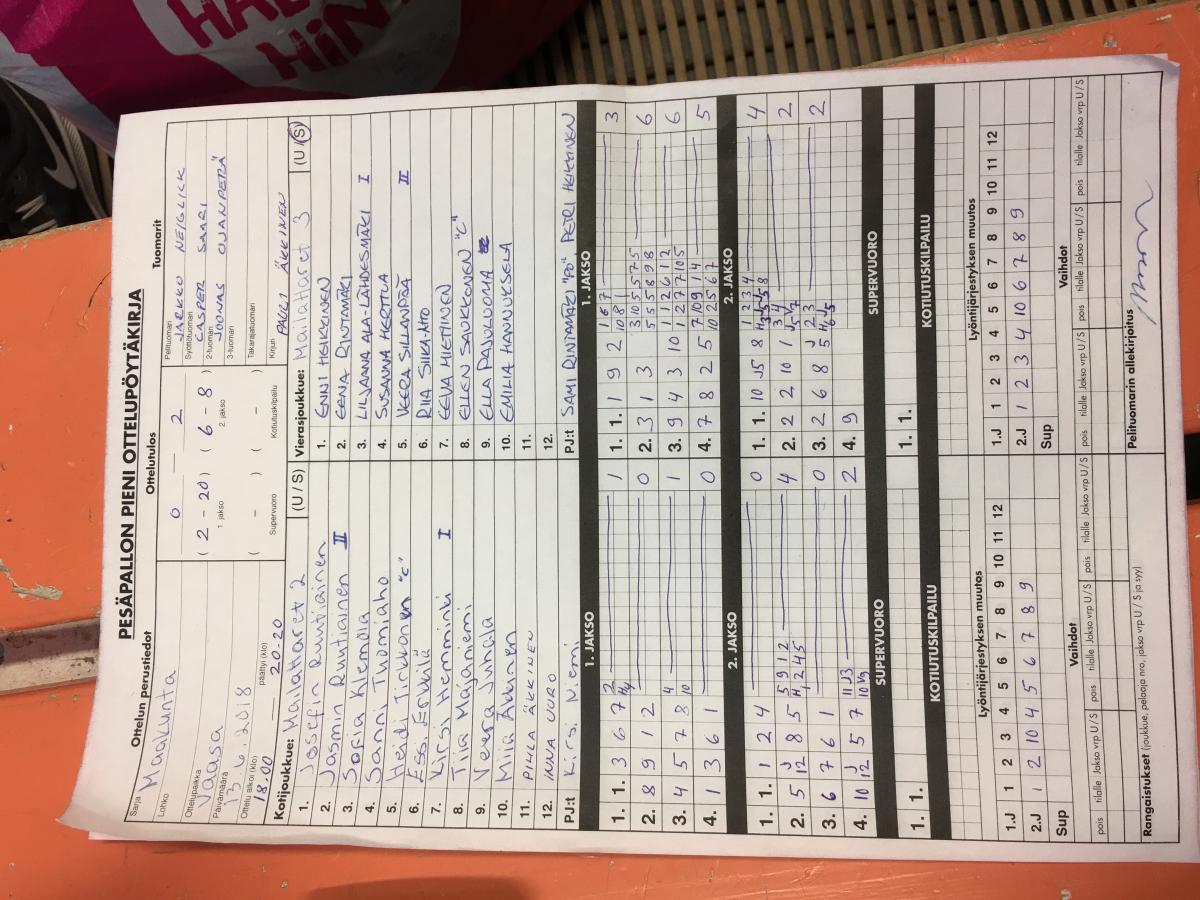 HALP
HiN
PESÄPALLON PIENI OTTELUPÖYTÄKIRJA
Ottelun perustiedot
Sarja Maakunta
Lohko
Ottelupaikka
Vaasa
Päivämäärä
13.6.2018
Ottelu alkoi (klo) päättyi (klo)
18.00 — 20.20
Ottelutulos
0 — 2
( 2 - 20 ) ( 6 - 8 )
1. jakso 2. jakso
( - ) ( - )
Supervuoro Kotiutuskilpailu
Tuomarit
Pelituomari
JARKKO NEIGLICK
Syöttötuomari
CASPER SAARI
2-tuomari
JOONAS OJANPERÄ
3-tuomari
Takarajatuomari
Kirjuri PAULI ÄKKINEN
Kotijoukkue: Mailattaret 2 (U / S)
1. Josefin Ruutiainen
2. Jasmin Ruutiainen II
3. Sofia Klemola
4. Sanni Tuomiaho
5. Heidi Tirkkonen "C"
6. Essi Erkkilä
7. Kirsi Hemminki I
8. Tiia Majaniemi
9. Veera Juhala
10. Miia Äkkinen
11. PIHLA ÄKKINEN
12. INKA VUORO
PJ:t Kirsi Niemi
Vierasjoukkue: Mailattaret 3 (U / S)
1. ENNI HEIKKINEN
2. EENA RINTAMÄKI
3. LILJAANA ALA-LÄHDESMÄKI I
4. SUSANNA HERTTUA
5. VEERA SILLANPÄÄ II
6. RIIA SIIKA-AHO
7. EEVA HIETINEN
8. ELLEN SAUKKONEN "C"
9. ELLA PAJULUOMA
10. EMILIA HANNUKSELA
11.
12.
PJ:t SAMI RINTAMÄKI "PO" PETRI HEIKKINEN
1. JAKSO
1. 1. 3 6 7 1
2. 8 9 1 2 0
3. 4 5 7 8 1
4. 1 3 6 1 0
1. JAKSO
1. 1. 1 9 2 3
2. 3 1 3 6
3. 9 4 3 10 6
4. 7 8 2 5 5
2. JAKSO
1. 1. 1 2 4 0
2. 5 12 8 5 4
3. 6 7 6 1 0
4. 10 12 5 7 2
2. JAKSO
1. 1. 10 J5 8 4
2. 2 2 10 1 2
3. 2 6 8 5 2
4. 9
SUPERVUORO
1. 1.
SUPERVUORO
1. 1.
KOTIUTUSKILPAILU
KOTIUTUSKILPAILU
Lyöntijärjestyksen muutos
1.J 1 2 3 4 5 6 7 8 9 10 11 12
2.J 1 2 10 4 5 6 7 8 9
Sup
Lyöntijärjestyksen muutos
1.J 1 2 3 4 5 6 7 8 9 10 11 12
2.J 1 2 3 4 10 6 7 8 9
Sup
Vaihdot
pois tilalle Jakso vrp U / S pois tilalle Jakso vrp U / S pois tilalle Jakso vrp U / S
Vaihdot
pois tilalle Jakso vrp U / S pois tilalle Jakso vrp U / S pois tilalle Jakso vrp U / S
Rangaistukset (joukkue, pelaaja nro, jakso vrp U / S ja syy)
Pelituomarin allekirjoitus